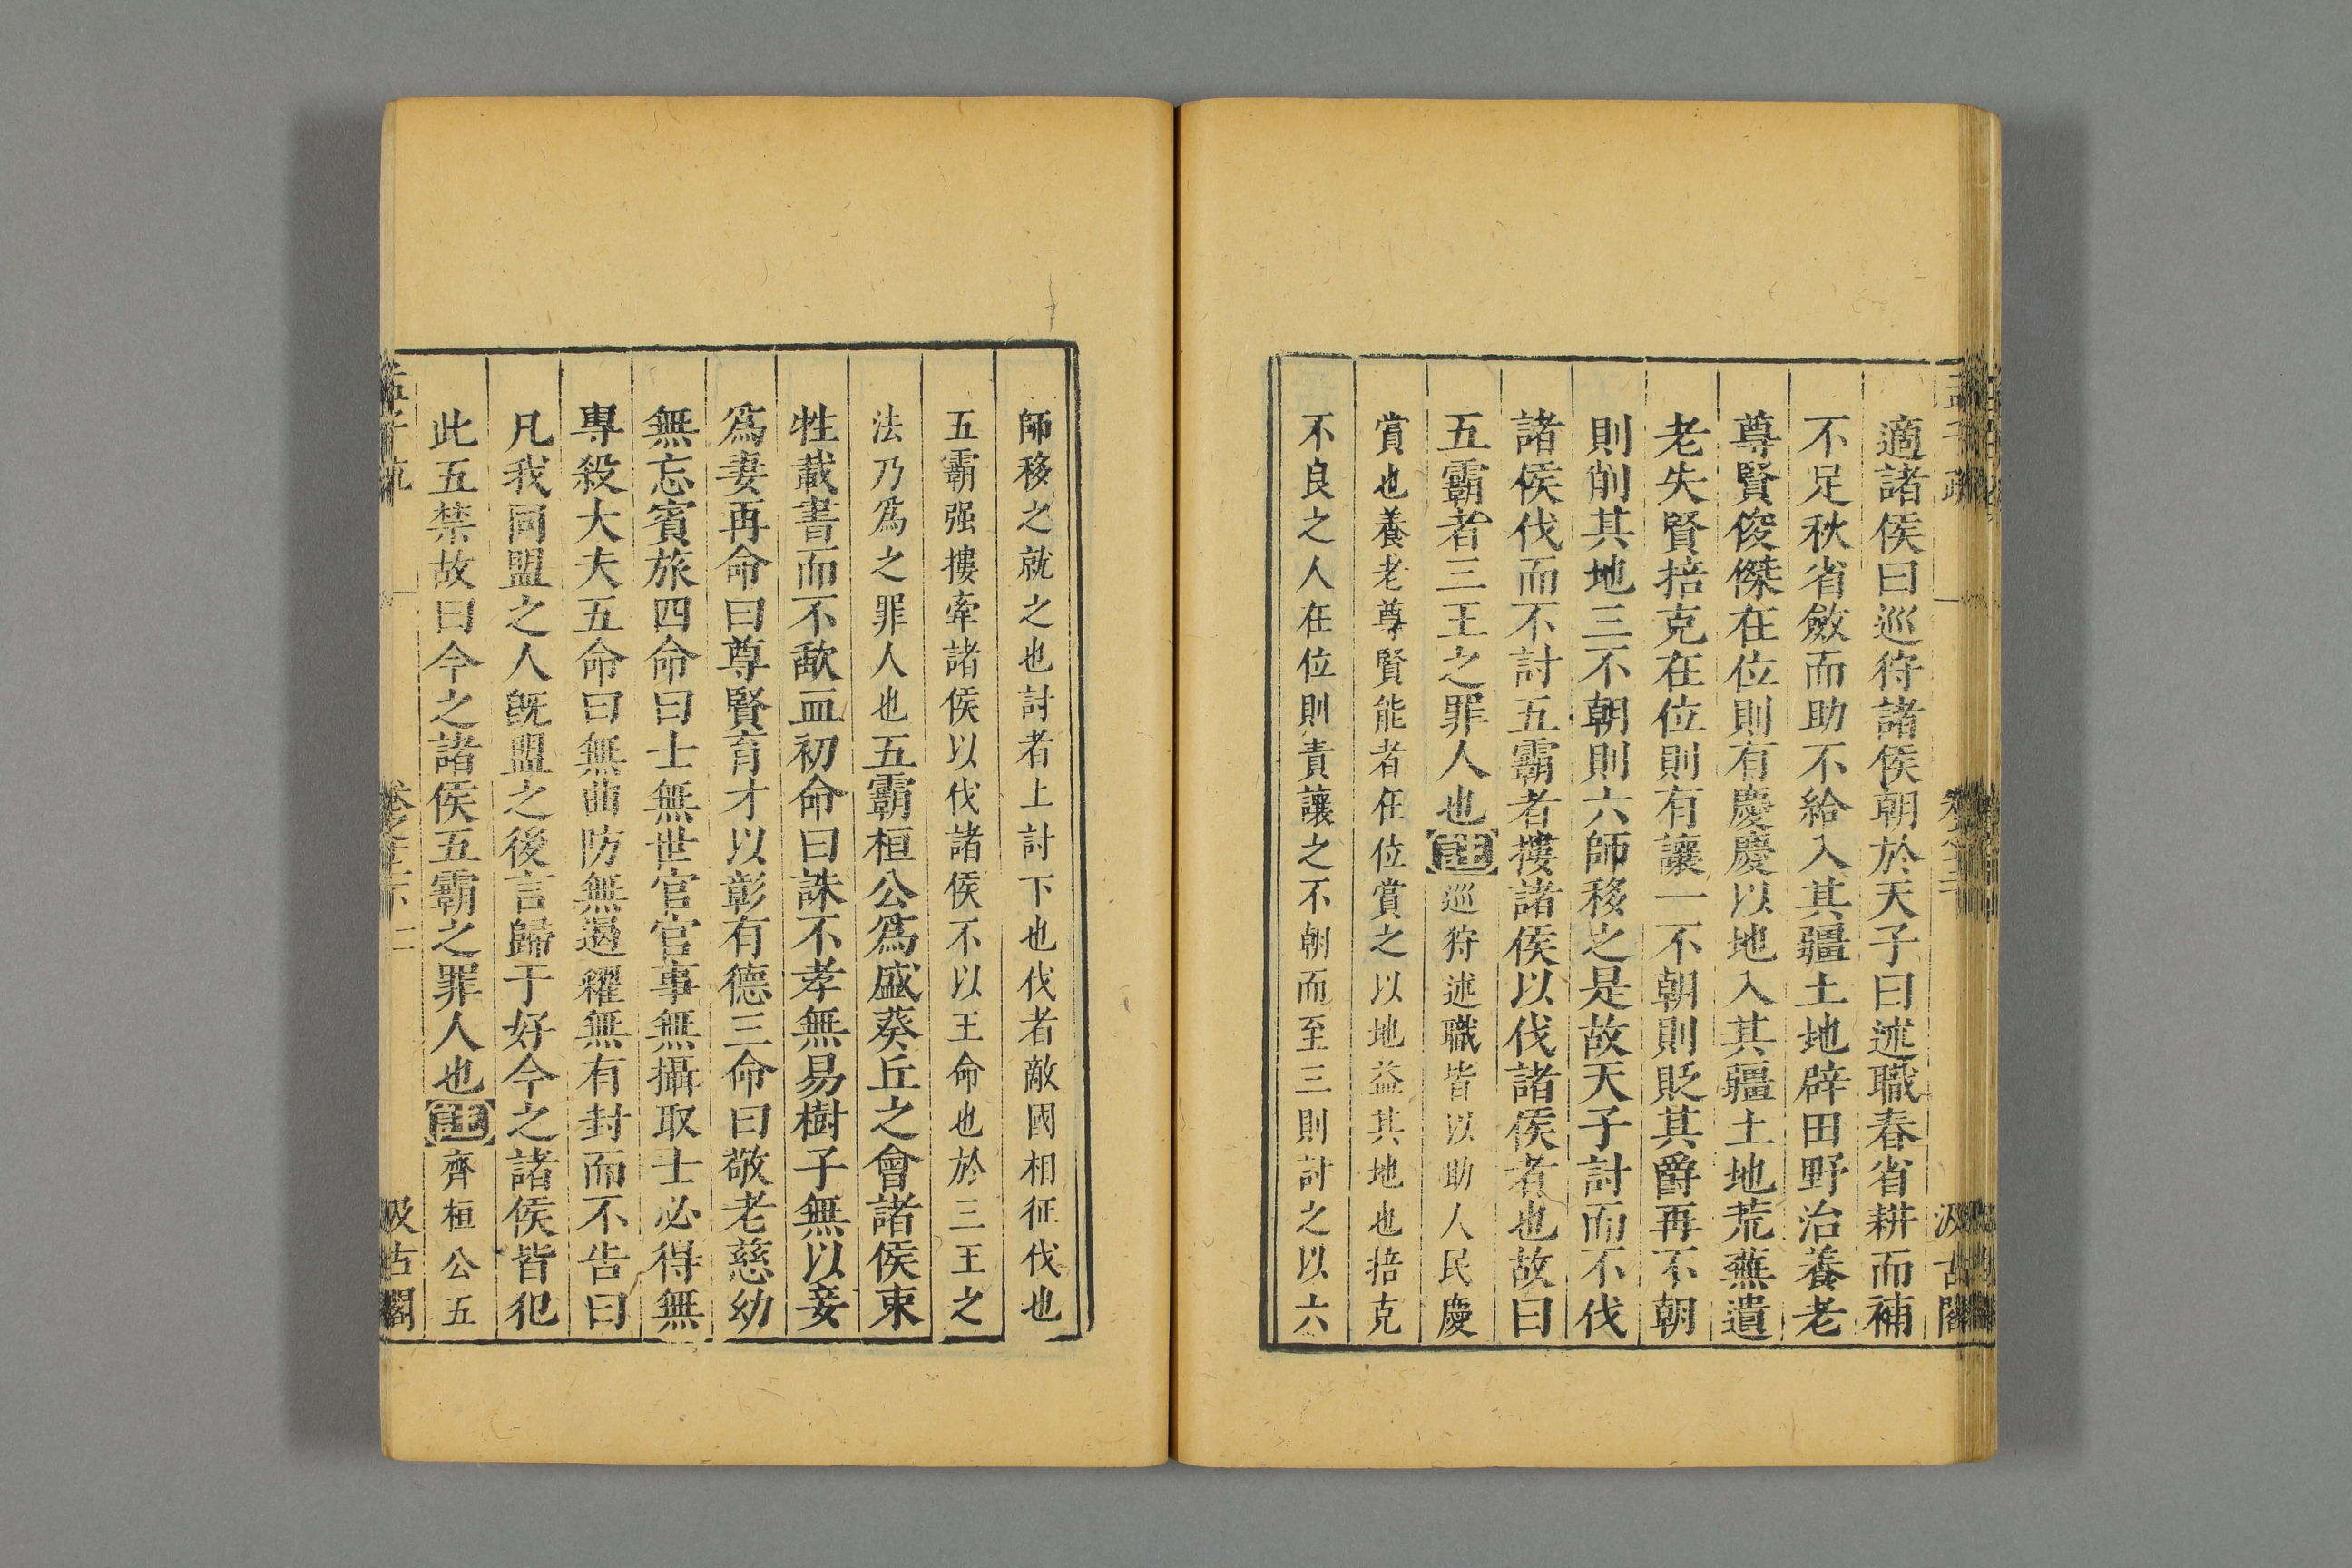 適諸侯曰巡狩諸侯朝於天子曰述職春省耕而補
不足秋省斂而助不給入其疆土地辟田野治養老
尊賢俊傑在位則有慶慶以地入其疆土地荒蕪遺
老失賢掊克在位則有讓一不朝則貶其爵再不朝
則削其地三不朝則六師移之是故天子討而不伐
諸侯伐而不討五霸者摟諸侯以伐諸侯者也故曰
五霸者三王之罪人也註巡狩述職皆以助人民慶
賞也養老尊賢能者在位賞之以地益其地也掊克
不良之人在位則責讓之不朝而至三則討之以六
師移之就之也討者上討下也伐者敵國相征伐也
五霸强摟牽諸侯以伐諸侯不以王命也於三王之
法乃爲之罪人也五霸桓公爲盛葵丘之會諸侯束
牲載書而不歃血初命曰誅不孝無易樹子無以妾
爲妻再命曰尊賢育才以彰有德三命曰敬老慈幼
無忘賓旅四命曰士無世官官事無攝取士必得無
專殺大夫五命曰無曲防無遏糴無有封而不告曰
凡我同盟之人旣盟之後言歸于好今之諸侯皆犯
此五禁故曰今之諸侯五霸之罪人也註齊桓公五